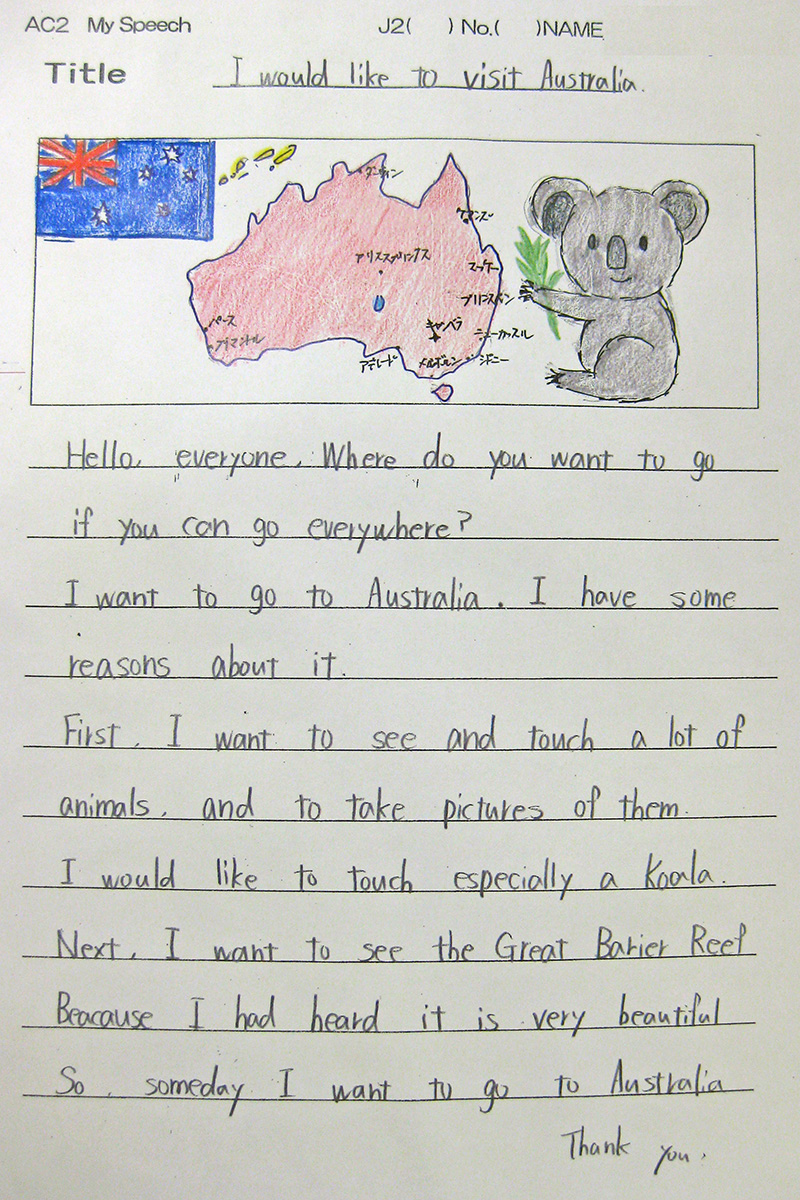 AC2 My Speech J2( ) No.( )NAME
Title I would like to visit Australia.
ダーウィン
ケアンズ
アリススプリングス
マッケー
ブリスベン
パース
フリマントル
キャンベラ
ニューカッスル
アデレード
メルボルン
シドニー
Hello, everyone. Where do you want to go
if you can go everywhere?
I want to go to Australia. I have some
reasons about it.
First, I want to see and touch a lot of
animals, and to take pictures of them.
I would like to touch especially a Koala.
Next, I want to see the Great Barier Reef
Beacause I had heard it is very beautiful
So, someday I want to go to Australia
Thank you.